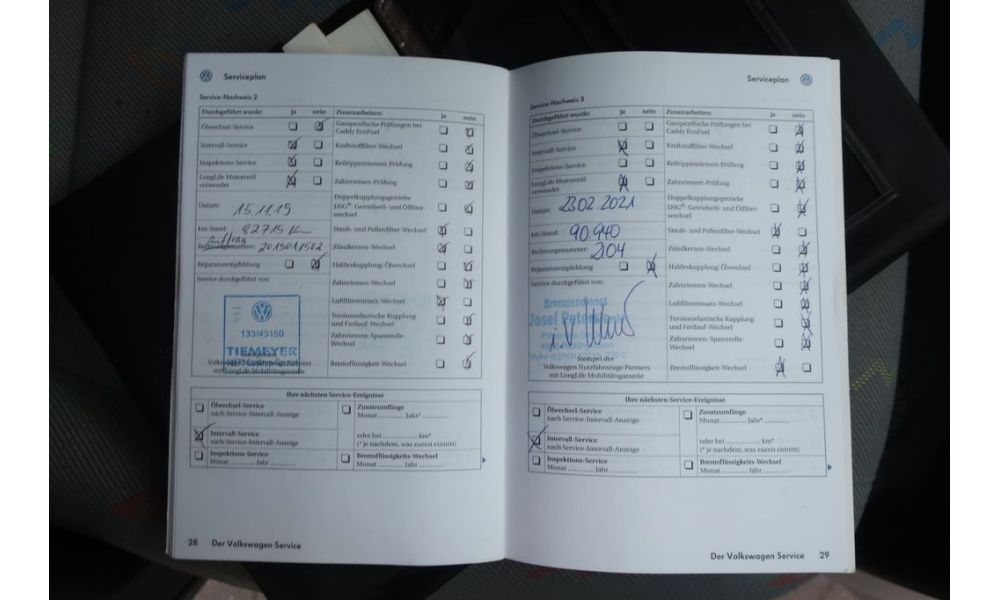 Serviceplan
Service-Nachweis 2
Durchgeführt wurde: ja nein
Ölwechsel-Service
Intervall-Service
Inspektions-Service
LongLife Motorenöl
verwendet
Datum: 15.11.19
km-Stand: 82715 km
Auftrag
Rechnungsnummer: 201501502
Reparaturempfehlung
Service durchgeführt von:
133/43150
TIEMEYER
Stempel des
Volkswagen Nutzfahrzeuge Partners
mit LongLife Mobilitätsgarantie
Zusatzarbeiten: ja nein
Gasspezifische Prüfungen bei
Caddy EcoFuel
Kraftstofffilter-Wechsel
Keilrippenriemen-Prüfung
Zahnriemen-Prüfung
Doppelkupplungsgetriebe
DSG®: Getriebeöl- und Ölfilter-
wechsel
Staub- und Pollenfilter-Wechsel
Zündkerzen-Wechsel
Haldexkupplung: Ölwechsel
Zahnriemen-Wechsel
Luftfiltereinsatz-Wechsel
Torsionselastische Kupplung
und Freilauf-Wechsel
Zahnriemen: Spannrolle-
Wechsel
Bremsflüssigkeit-Wechsel
Ihre nächsten Service-Ereignisse
Ölwechsel-Service
nach Service-Intervall-Anzeige
Intervall-Service
nach Service-Intervall-Anzeige
Inspektions-Service
Monat ........... Jahr ...........
Zusatzumfänge
Monat ........... Jahr* ...........
oder bei ........... km*
(* je nachdem, was zuerst eintritt)
Bremsflüssigkeits-Wechsel
Monat ........... Jahr ...........
28 Der Volkswagen Service
Serviceplan
Service-Nachweis 3
Durchgeführt wurde: ja nein
Ölwechsel-Service
Intervall-Service
Inspektions-Service
LongLife Motorenöl
verwendet
Datum: 23 02 2021
km-Stand: 90.940
Rechnungsnummer: 204
Reparaturempfehlung
Service durchgeführt von:
Bremsendienst
Josef Peters
Stempel des
Volkswagen Nutzfahrzeuge Partners
mit LongLife Mobilitätsgarantie
Zusatzarbeiten: ja nein
Gasspezifische Prüfungen bei
Caddy EcoFuel
Kraftstofffilter-Wechsel
Keilrippenriemen-Prüfung
Zahnriemen-Prüfung
Doppelkupplungsgetriebe
DSG®: Getriebeöl- und Ölfilter-
wechsel
Staub- und Pollenfilter-Wechsel
Zündkerzen-Wechsel
Haldexkupplung: Ölwechsel
Zahnriemen-Wechsel
Luftfiltereinsatz-Wechsel
Torsionselastische Kupplung
und Freilauf-Wechsel
Zahnriemen: Spannrolle-
Wechsel
Bremsflüssigkeit-Wechsel
Ihre nächsten Service-Ereignisse
Ölwechsel-Service
nach Service-Intervall-Anzeige
Intervall-Service
nach Service-Intervall-Anzeige
Inspektions-Service
Monat ........... Jahr ...........
Zusatzumfänge
Monat ........... Jahr* ...........
oder bei ........... km*
(* je nachdem, was zuerst eintritt)
Bremsflüssigkeits-Wechsel
Monat ........... Jahr ...........
Der Volkswagen Service 29